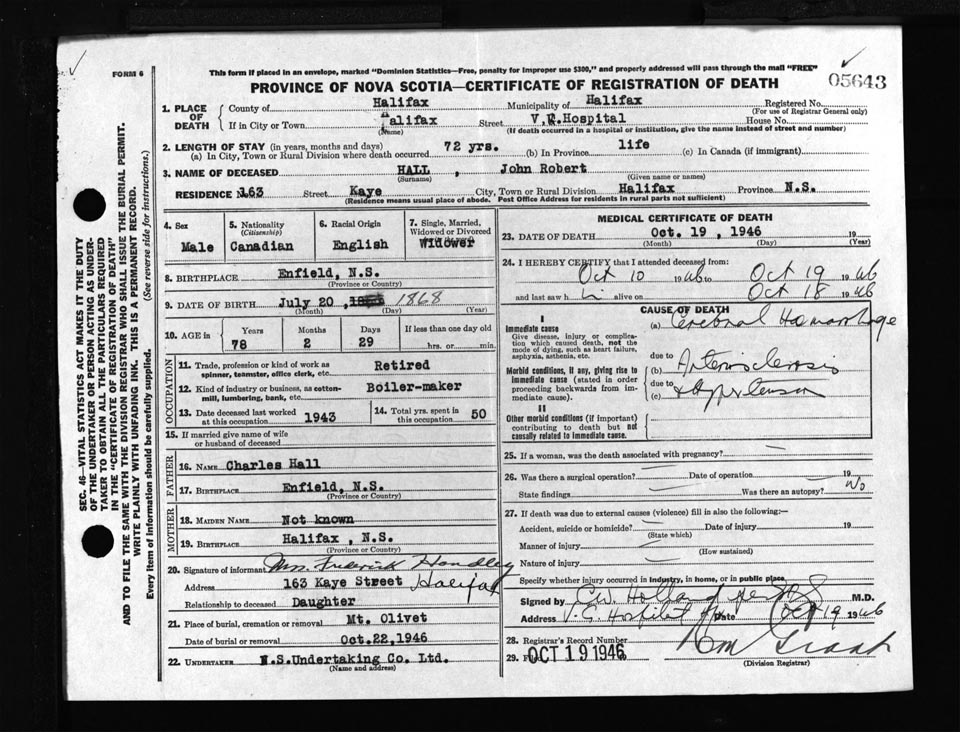 FORM 6
This form if placed in an envelope, marked "Dominion Statistics—Free, penalty for improper use $300," and properly addressed will pass through the mail "FREE"
PROVINCE OF NOVA SCOTIA—CERTIFICATE OF REGISTRATION OF DEATH
05643
1. PLACE OF DEATH
County of Halifax Municipality of Halifax Registered No.
(For use of Registrar General only)
If in City or Town Halifax Street V.G.Hospital House No.
(Name) (If death occurred in a hospital or institution, give the name instead of street and number)
2. LENGTH OF STAY (in years, months and days)
(a) In City, Town or Rural Division where death occurred 72 yrs. (b) In Province life (c) In Canada (if immigrant)
3. NAME OF DECEASED HALL , John Robert
(Surname) (Given name or names)
RESIDENCE No. 163 Street Kaye City, Town or Rural Division Halifax Province N.S.
(Residence means usual place of abode. Post Office Address for residents in rural parts not sufficient)
4. Sex Male
5. Nationality (Citizenship) Canadian
6. Racial Origin English
7. Single, Married, Widowed or Divorced Widower
8. BIRTHPLACE Enfield, N.S.
(Province or Country)
9. DATE OF BIRTH July 20 , 1868
(Month) (Day) (Year)
10. AGE in Years Months Days If less than one day old
78 2 29 hrs. or min.
OCCUPATION
11. Trade, profession or kind of work as spinner, teamster, office clerk, etc. Retired
12. Kind of industry or business, as cotton-mill, lumbering, bank, etc. Boiler-maker
13. Date deceased last worked at this occupation 1943
14. Total yrs. spent in this occupation 50
15. If married give name of wife or husband of deceased
FATHER
16. NAME Charles Hall
17. BIRTHPLACE Enfield, N.S.
(Province or Country)
MOTHER
18. MAIDEN NAME Not known
19. BIRTHPLACE Halifax , N.S.
(Province or Country)
20. Signature of informant Mrs. Frederick Handley
Address 163 Kaye Street Halifax
Relationship to deceased Daughter
21. Place of burial, cremation or removal Mt. Olivet
Date of burial or removal Oct.22,1946
22. UNDERTAKER N.S.Undertaking Co. Ltd.
(Name and address)
MEDICAL CERTIFICATE OF DEATH
23. DATE OF DEATH Oct. 19 , 1946 19
(Month) (Day) (Year)
24. I HEREBY CERTIFY that I attended deceased from:
Oct 10 1946 to Oct 19 1946
and last saw him alive on Oct 18 1946
CAUSE OF DEATH
I
Immediate cause
Give disease, injury or complication which caused death, not the mode of dying, such as heart failure, asphyxia, asthenia, etc.
(a) Cerebral Hemorrhage
due to
Morbid conditions, if any, giving rise to immediate cause (stated in order proceeding backwards from immediate cause).
(b) Arteriosclerosis
due to
(c) Hypertension
II
Other morbid conditions (if important) contributing to death but not causally related to immediate cause.
25. If a woman, was the death associated with pregnancy?
26. Was there a surgical operation? — Date of operation — 19
State findings — Was there an autopsy? No
27. If death was due to external causes (violence) fill in also the following:—
Accident, suicide or homicide? — Date of injury 19
(State which)
Manner of injury —
(How sustained)
Nature of injury —
Specify whether injury occurred in industry, in home, or in public place
Signed by C.W. Holland per M.D.
Address V.G. Hospital Hfx Date Oct 19 1946
28. Registrar's Record Number
29. Filed OCT 19 1946
(Division Registrar)
SEC. 46—VITAL STATISTICS ACT MAKES IT THE DUTY
OF THE UNDERTAKER OR PERSON ACTING AS UNDER-
TAKER TO OBTAIN ALL THE PARTICULARS REQUIRED
IN THE "CERTIFICATE OF REGISTRATION OF DEATH"
AND TO FILE THE SAME WITH THE DIVISION REGISTRAR WHO SHALL ISSUE THE BURIAL PERMIT.
WRITE PLAINLY WITH UNFADING INK. THIS IS A PERMANENT RECORD.
Every item of information should be carefully supplied. (See reverse side for instructions.)